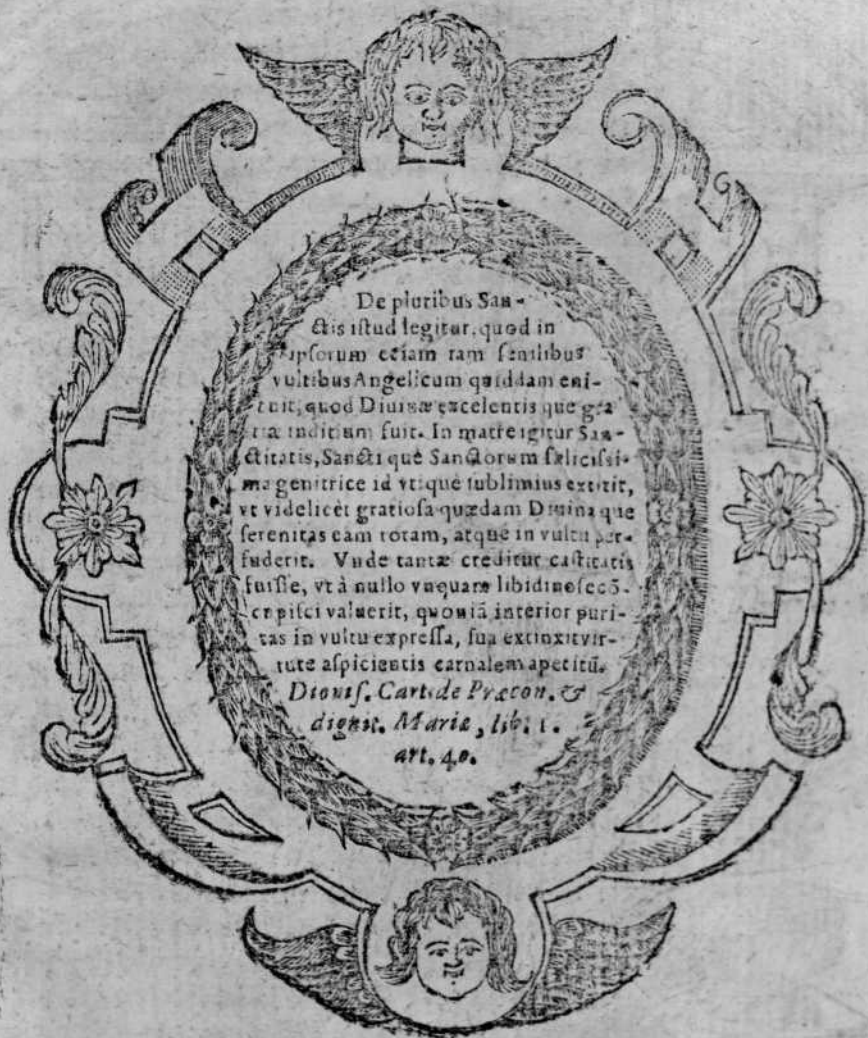 De pluribus San-
ctis istud legitur, quod in
ipsorum etiam tam senilibus
vultibus Angelicum quiddam eni-
tuit, quod Diuinæ excelentis que gra
tiæ inditium fuit. In matre igitur San-
ctitatis, Sancti què Sanctorum fælicissi-
ma genitrice id vtique sublimius extitit,
vt videlicèt gratiosa quædam Diuina que
serenitas eam totam, atque in vultu per-
fuderit. Vnde tantæ creditur castitatis
fuisse, vt à nullo vnquam libidinosè cō-
cupisci valuerit, quoniā interior puri-
tas in vultu expressa, sua extinxit vir-
tute aspicientis carnalem apetitū.
Dionis. Cart. de Præcon. &
dignit. Mariæ, lib. 1.
art. 40.